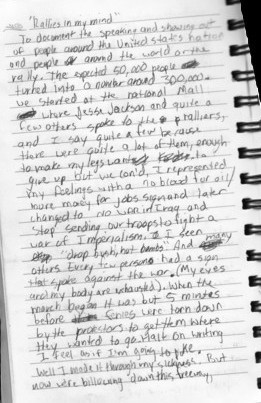 "Rallies in my mind"
To document the speaking and showing out
of people around the United States nation
and people around the world or the
rally. The expected 50,000 people
turned into a number around 300,000.
we started at the national Mall
where Jesse Jackson and quite a
few others spoke to the ralliers,
and I say quite a few because
there were quite a lot of them, enough
to make my legs want to
give up but we con'd, I represented
my feelings with a no blood for oil/
more money for jobs sign and later
changed to no war in Iraq and
"stop sending our troops to fight a
war of Imperialism. I seen many
"drop bush, not bombs" And
others Every few persons had a sign
that spoke against the war. (My eyes
and my body are exhausted). When the
march began it was but 5 minutes
before fences were torn down
by the protectors to get them where
they wanted to go. Halt on writing
I feel as if I'm going to puke.
Well I made it through my sickness. But
now we're billowing down this